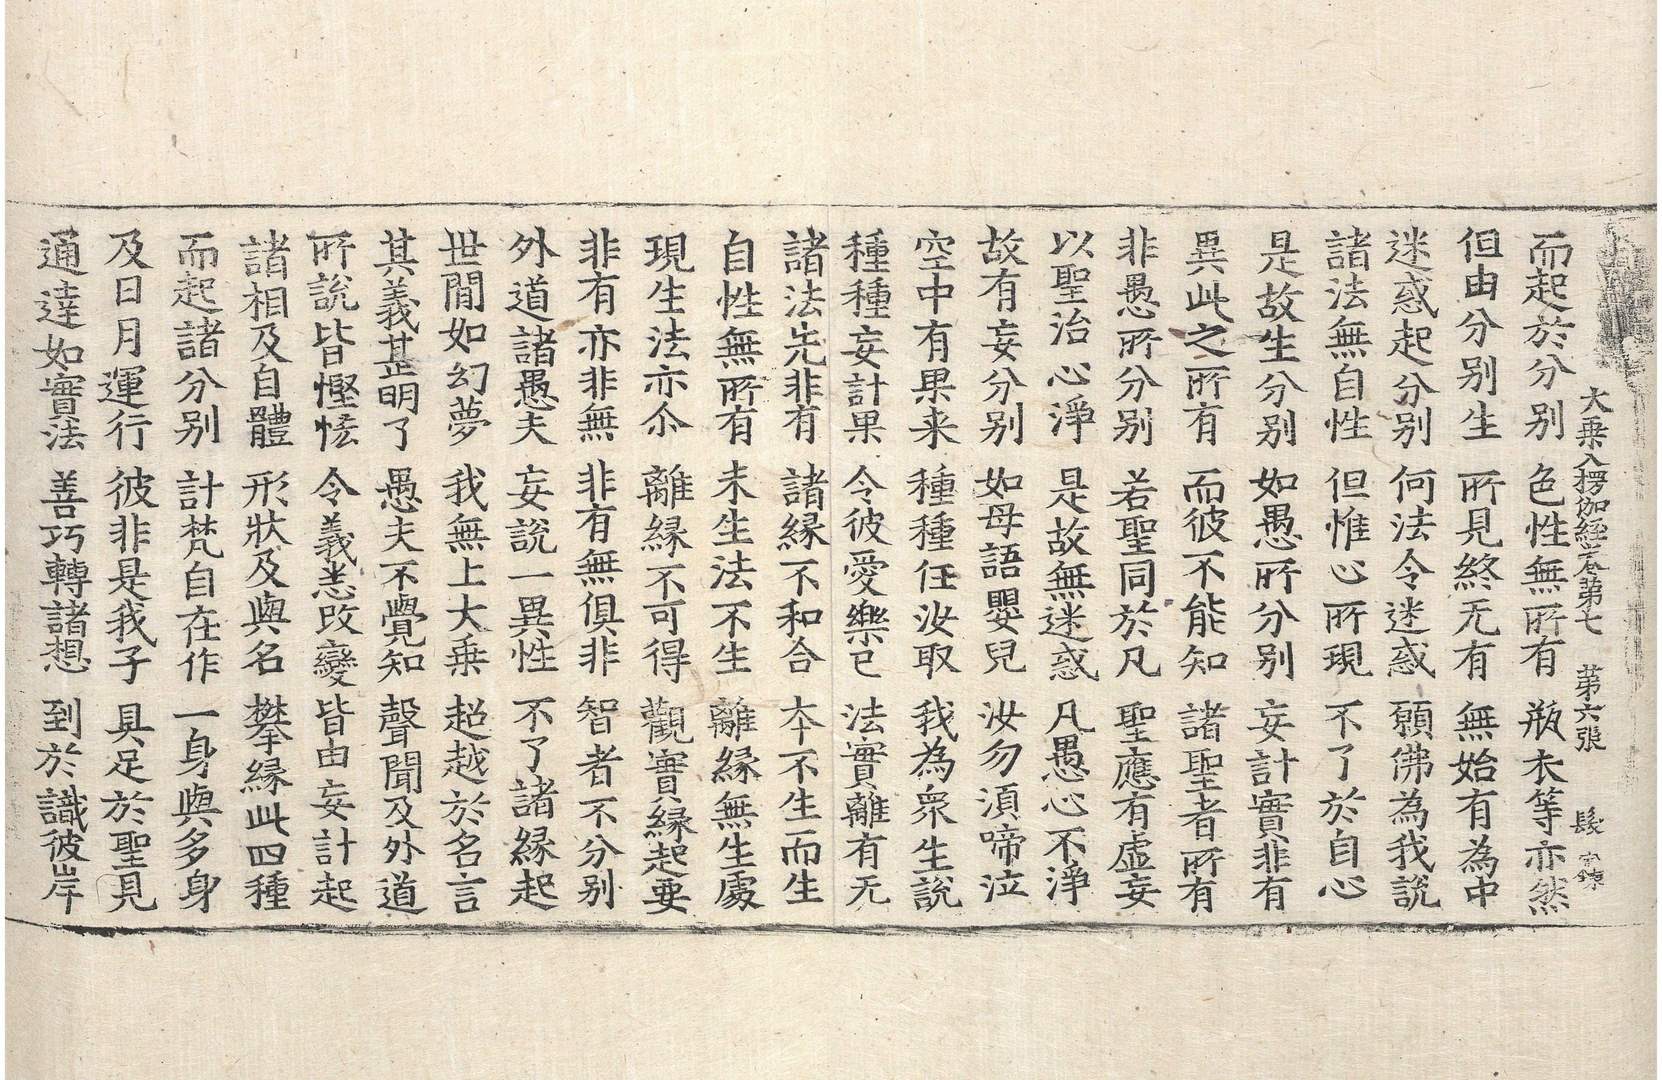 大乗入楞伽經卷第七 第六張 髮 𡧛鍊
而起於分别 色性無所有 瓶衣等亦然
但由分别生 所見終无有 無始有為中
迷惑起分别 何法令迷惑 願佛為我説
諸法無自性 但惟心所現 不了於自心
是故生分别 如愚所分别 妄計實非有
異此之所有 而彼不能知 諸聖者所有
非愚所分别 若聖同於凡 聖應有虛妄
以聖治心淨 是故無迷惑 凡愚心不淨
故有妄分别 如母語嬰兒 汝勿湏啼泣
空中有果来 種種任汝取 我為衆生説
種種妄計果 令彼愛樂已 法實離有无
諸法先非有 諸縁不和合 夲不生而生
自性無所有 未生法不生 離縁無生處
現生法亦尒 離縁不可得 觀實縁起要
非有亦非無 非有無俱非 智者不分别
外道諸愚夫 妄説一異性 不了諸縁起
世間如幻夢 我無上大乗 超越於名言
其義甚明了 愚夫不覺知 聲聞及外道
所説皆慳悋 令義悉改變 皆由妄計起
諸相及自體 形狀及與名 攀縁此四種
而起諸分别 計梵自在作 一身與多身
及日月運行 彼非是我子 具足於聖見
通達如實法 善巧轉諸想 到於識彼岸